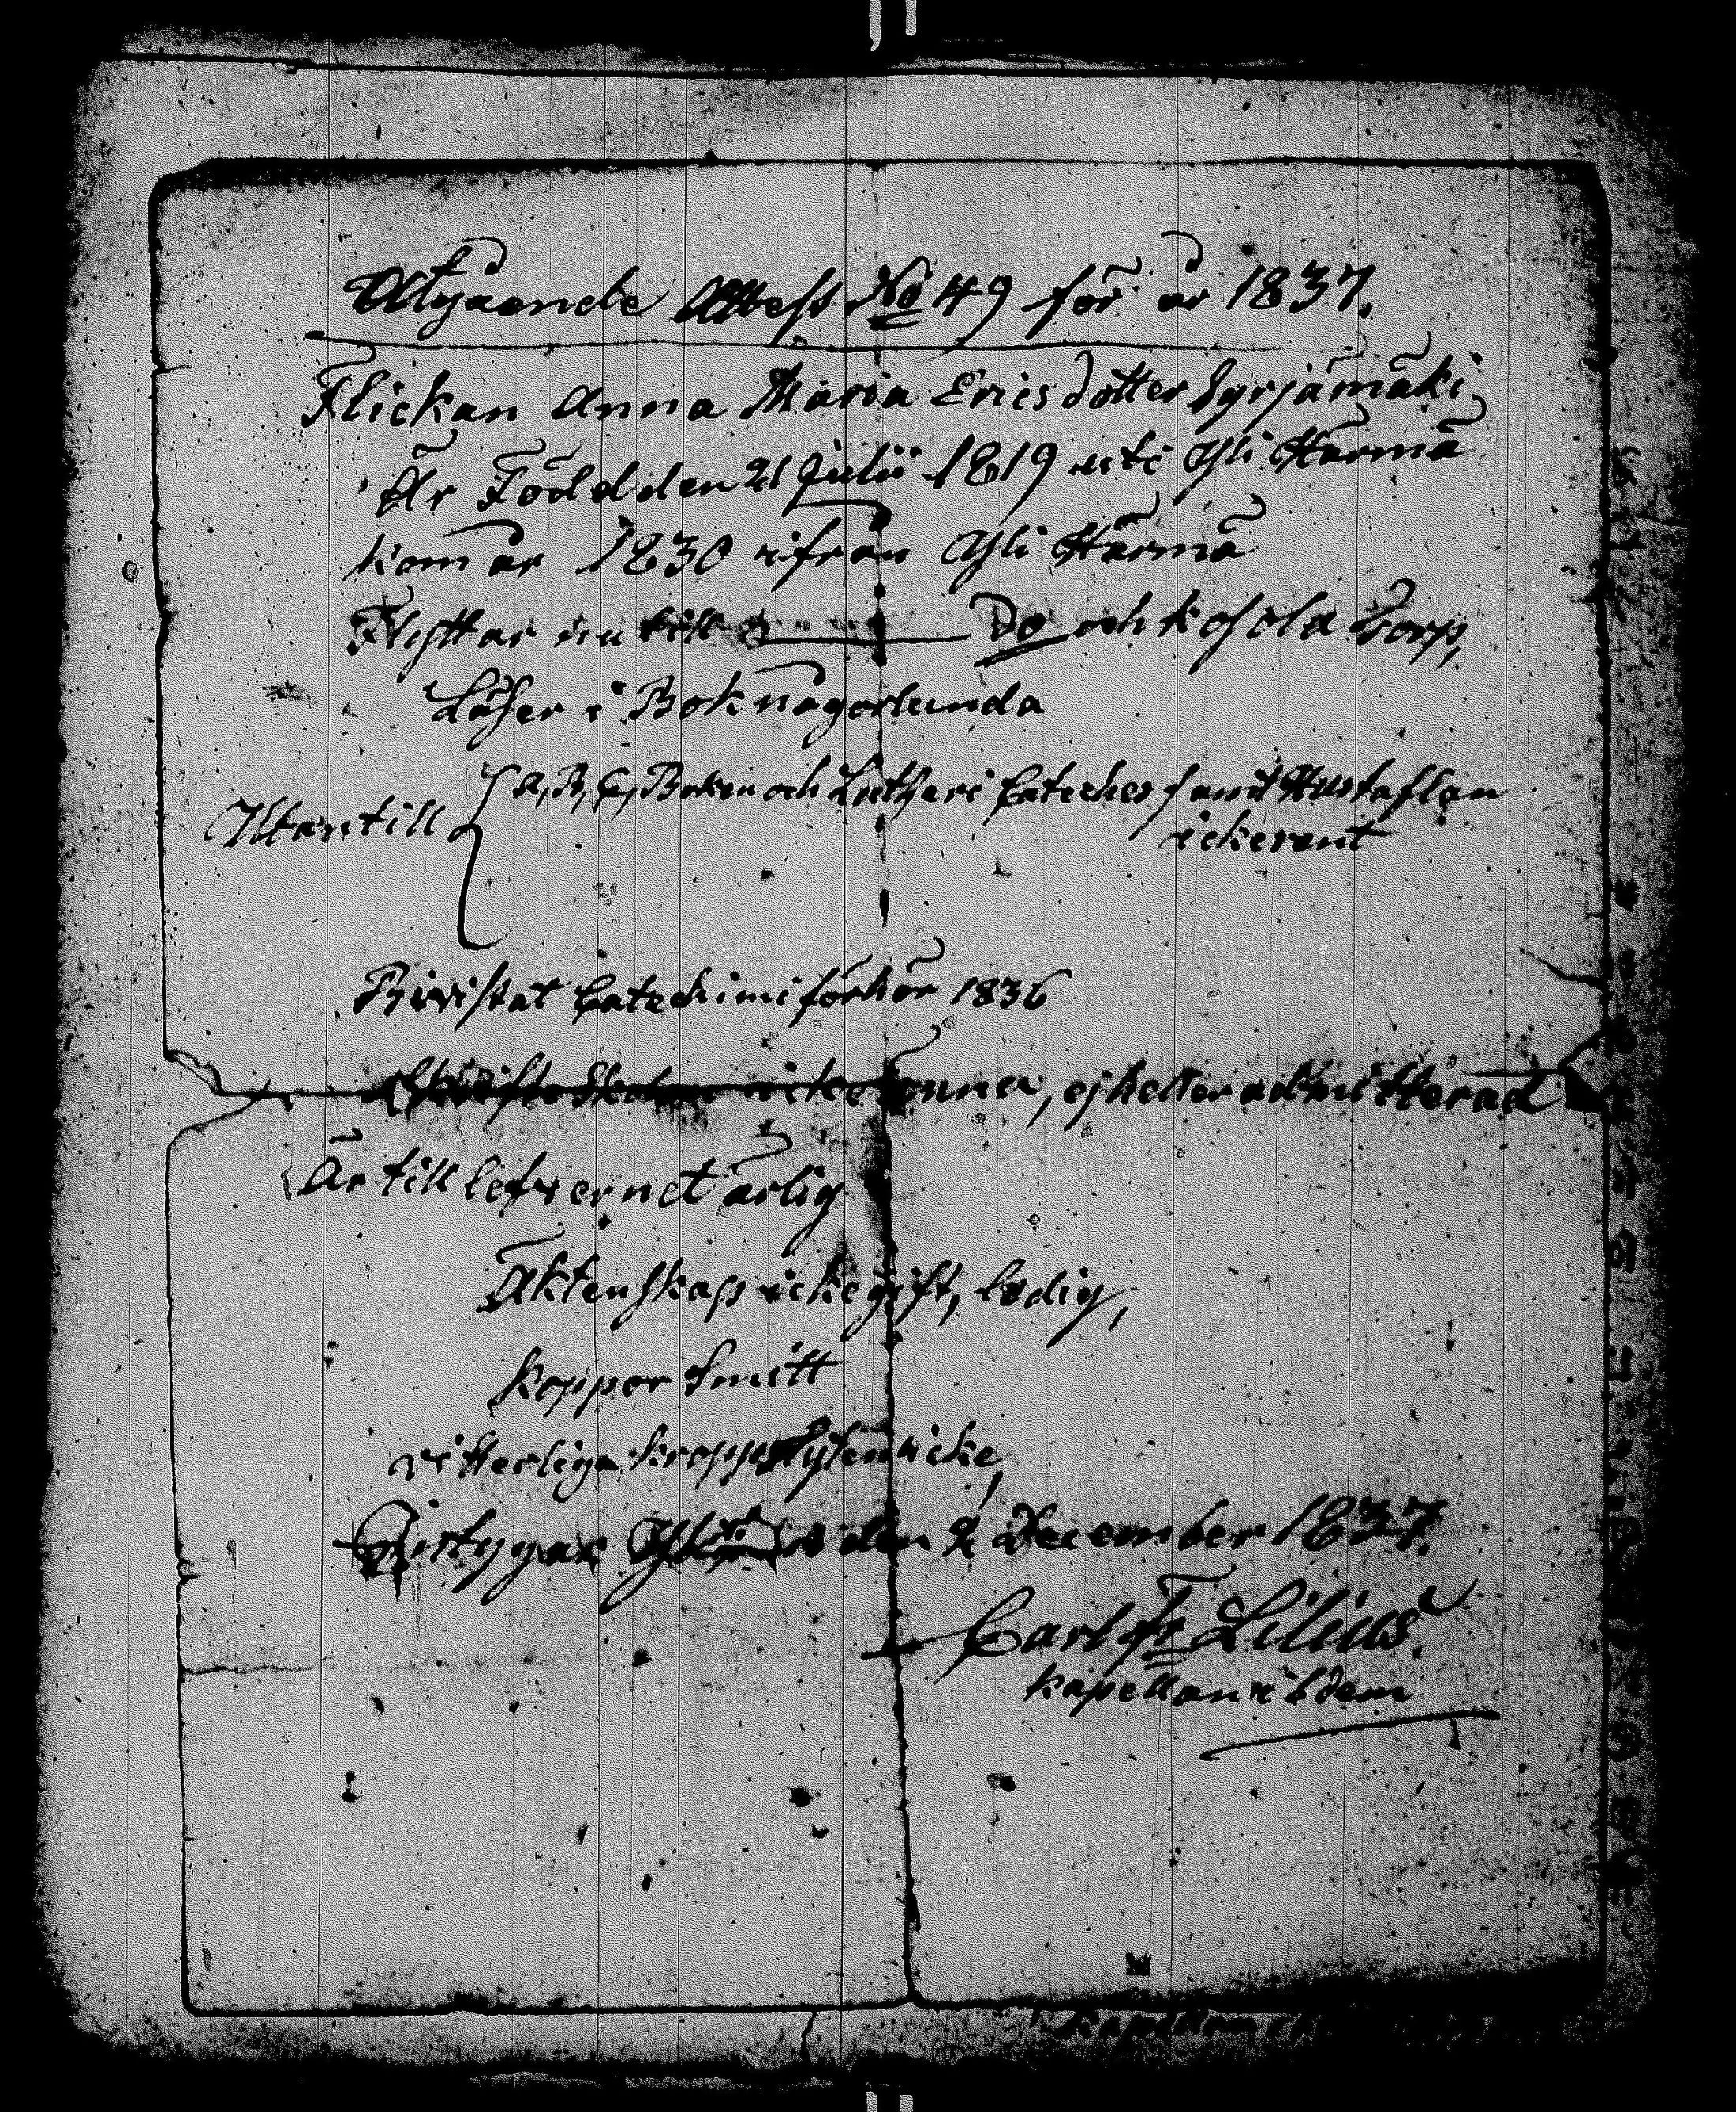 Utgående Attest No 49 för år 1837.
Flickan Anna Maria Ericsdotter Syrjämäki
Är Född den 21 Julii 1819 uti Yli Härmä
Kom år 1830 ifrån Yli Härmä
Flyttar nu till Do och Kosola Torp,
Läser i Bok någorlunda
Utantill A, B, C, Boken och Lutheri Cateches samt Hustaflan
ickerent
Bivistat Catechimi förhör 1836
icke ejheller admitterad
Är till lefvernet ärlig
Äktenskap icke gift, ledig,
Koppor Smitt
vitterliga kropps lyten icke,
den 2 December 1837.
Carl Fr Lilius
Kapellan ibdem